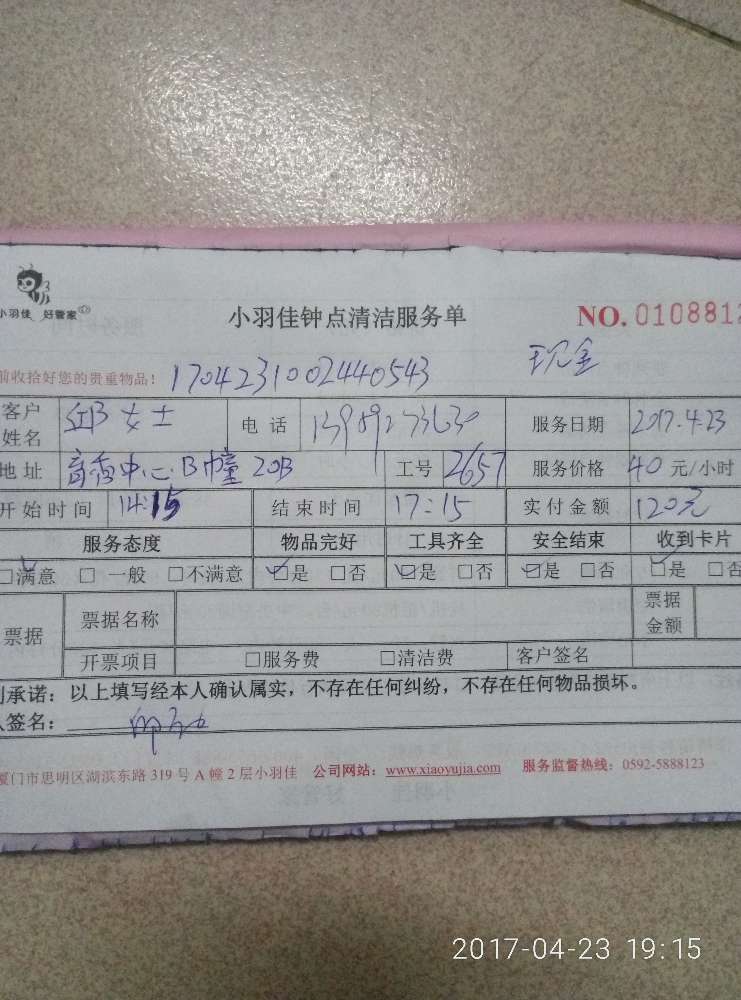 小羽佳 好管家
小羽佳钟点清洁服务单
NO. 0108812
前收拾好您的贵重物品! 1704231002440543 现金
客户姓名 邱女士 电话 服务日期 2017.4.23
地址 B幢 20B 工号 2657 服务价格 40 元/小时
开始时间 14:15 结束时间 17:15 实付金额 120元
服务态度 物品完好 工具齐全 安全结束 收到卡片
□满意 □一般 □不满意 □是 □否 □是 □否 □是 □否 □是 □否
票据 票据名称 票据金额
开票项目 □服务费 □清洁费 客户签名
承诺:以上填写经本人确认属实,不存在任何纠纷,不存在任何物品损坏。
签名:
厦门市思明区湖滨东路 319 号 A 幢 2 层小羽佳 公司网站:www.xiaoyujia.com 服务监督热线:0592-5888123
2017-04-23 19:15